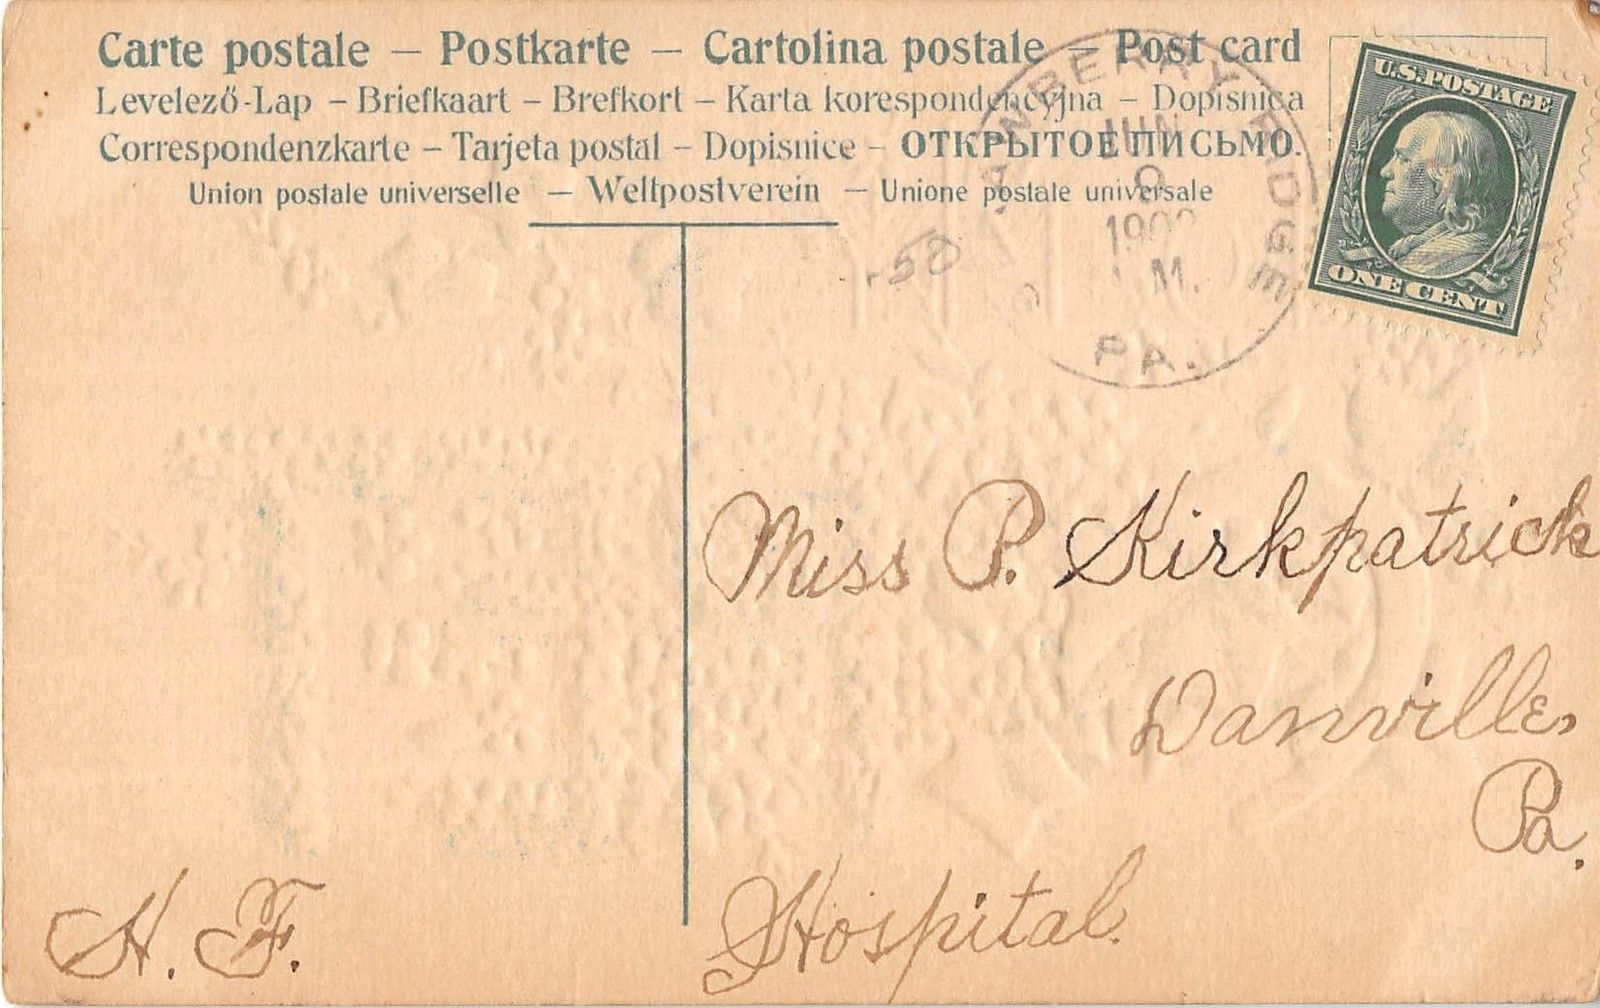 Carte postale – Postkarte – Cartolina postale – Post card
Levelező-Lap – Briefkaart – Brefkort – Karta korespondencyjna – Dopisnica
Correspondenzkarte – Tarjeta postal – Dopisnice – ОТКРЫТОЕ ПИСЬМО.
Union postale universelle – Weltpostverein – Unione postale universale
U.S. POSTAGE
ONE CENT
RIDGE
JUN
M.
PA.
58
Miss P. Kirkpatrick
Danville,
Pa.
Hospital.
H. F.